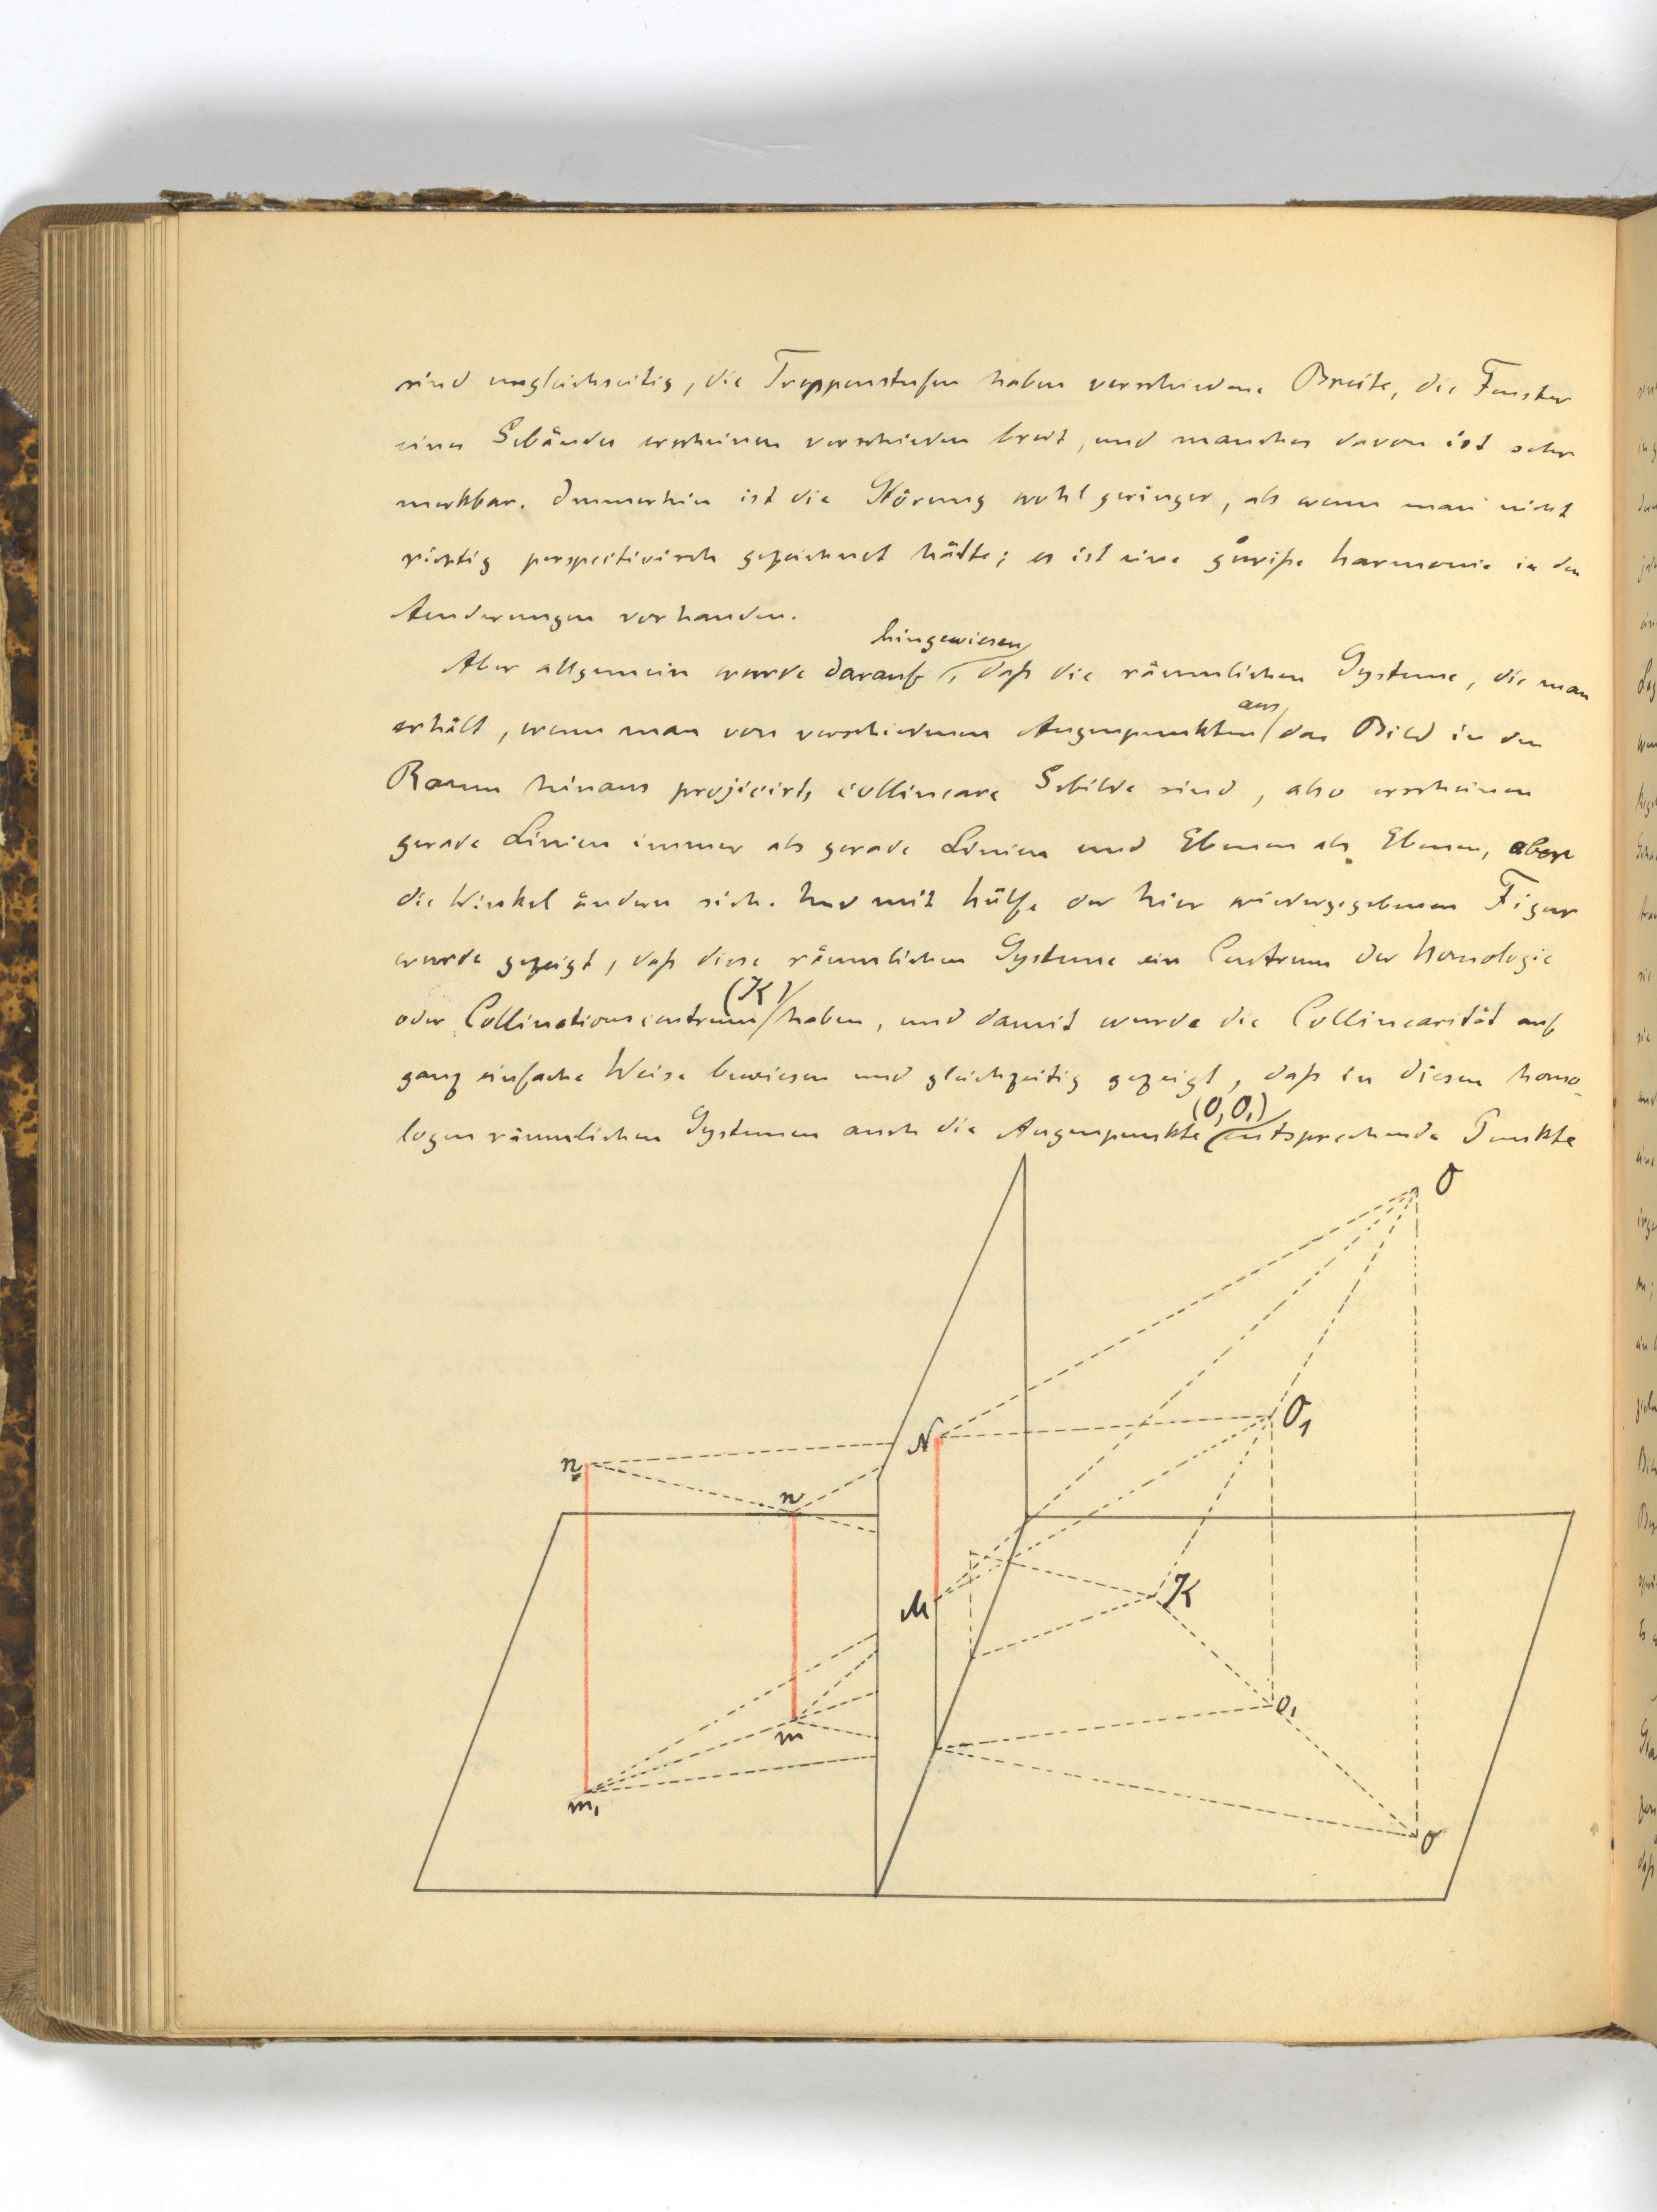 sind ungleichseitig, die Treppenstufen haben verschiedene Breite, die Fenster
eines Gebäudes erscheinen verschieden breit, und manches davon ist sehr
merkbar. Immerhin ist die Störung wohl geringer, als wenn man nicht
richtig perspectivisch gezeichnet hätte; es ist eine gewiße Harmonie in den
Aenderungen vorhanden.
hingewiesen
Aber allgemein wurde darauf, daß die räumlichen Systeme, die man
aus
erhält, wenn man von verschiedenen Augenpunkten das Bild in den
Raum hinaus projicirt, collineare Gebilde sind, also erscheinen
gerade Linien immer als gerade Linien und Ebenen als Ebenen, aber
die Winkel ändern sich. Und mit Hülfe der hier wiedergegebenen Figur
wurde gezeigt, daß diese räumlichen Systeme ein Centrum der Homologie
(K)
oder Collinationscentrum haben, und damit wurde die Collinearität auf
ganz einfache Weise bewiesen und gleichzeitig gezeigt, daß in diesen homo-
(O, O₁)
logen räumlichen Systemen auch die Augenpunkte entsprechende Punkte
O
O₁
N
n
K
M
o₁
m
m₁
o